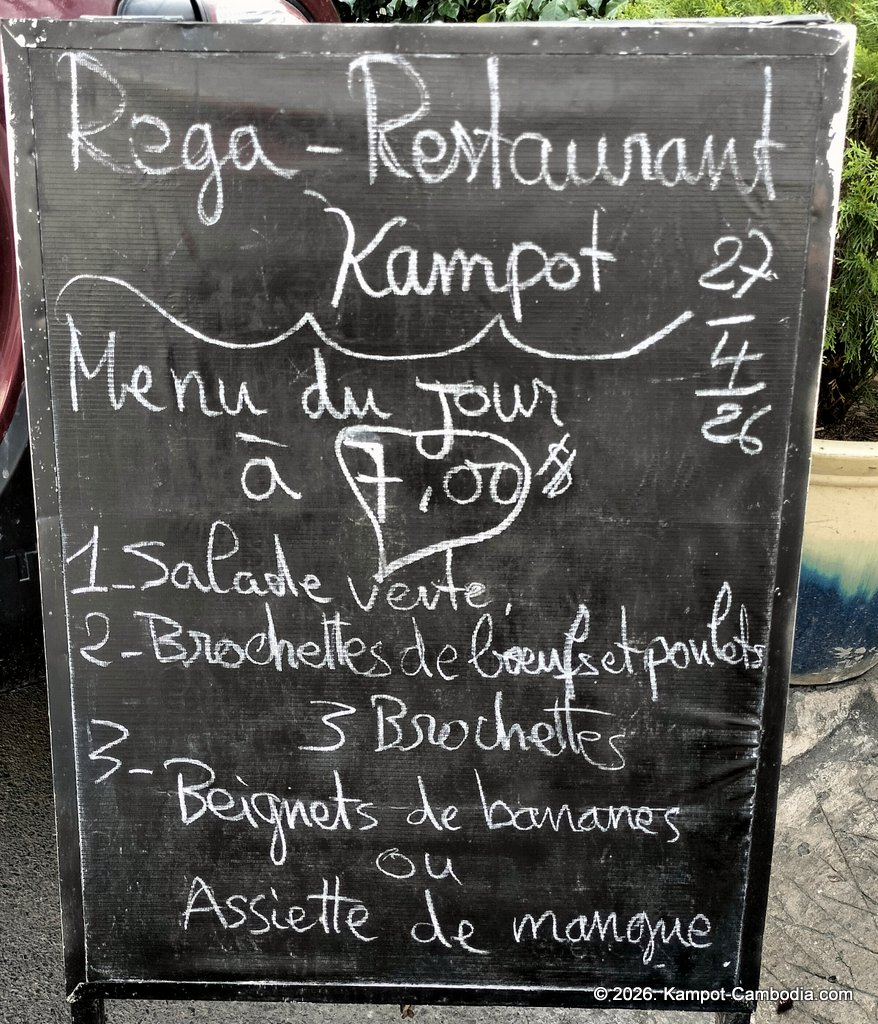 Rega - Restaurant
Kampot
27
4
26
Menu du jour
à 7,00 $
1-Salade verte,
2-Brochettes de bœufs et poulets
3 Brochettes
3- Beignets de bananes
ou
Assiette de mangue
© 2026. Kampot-Cambodia.com